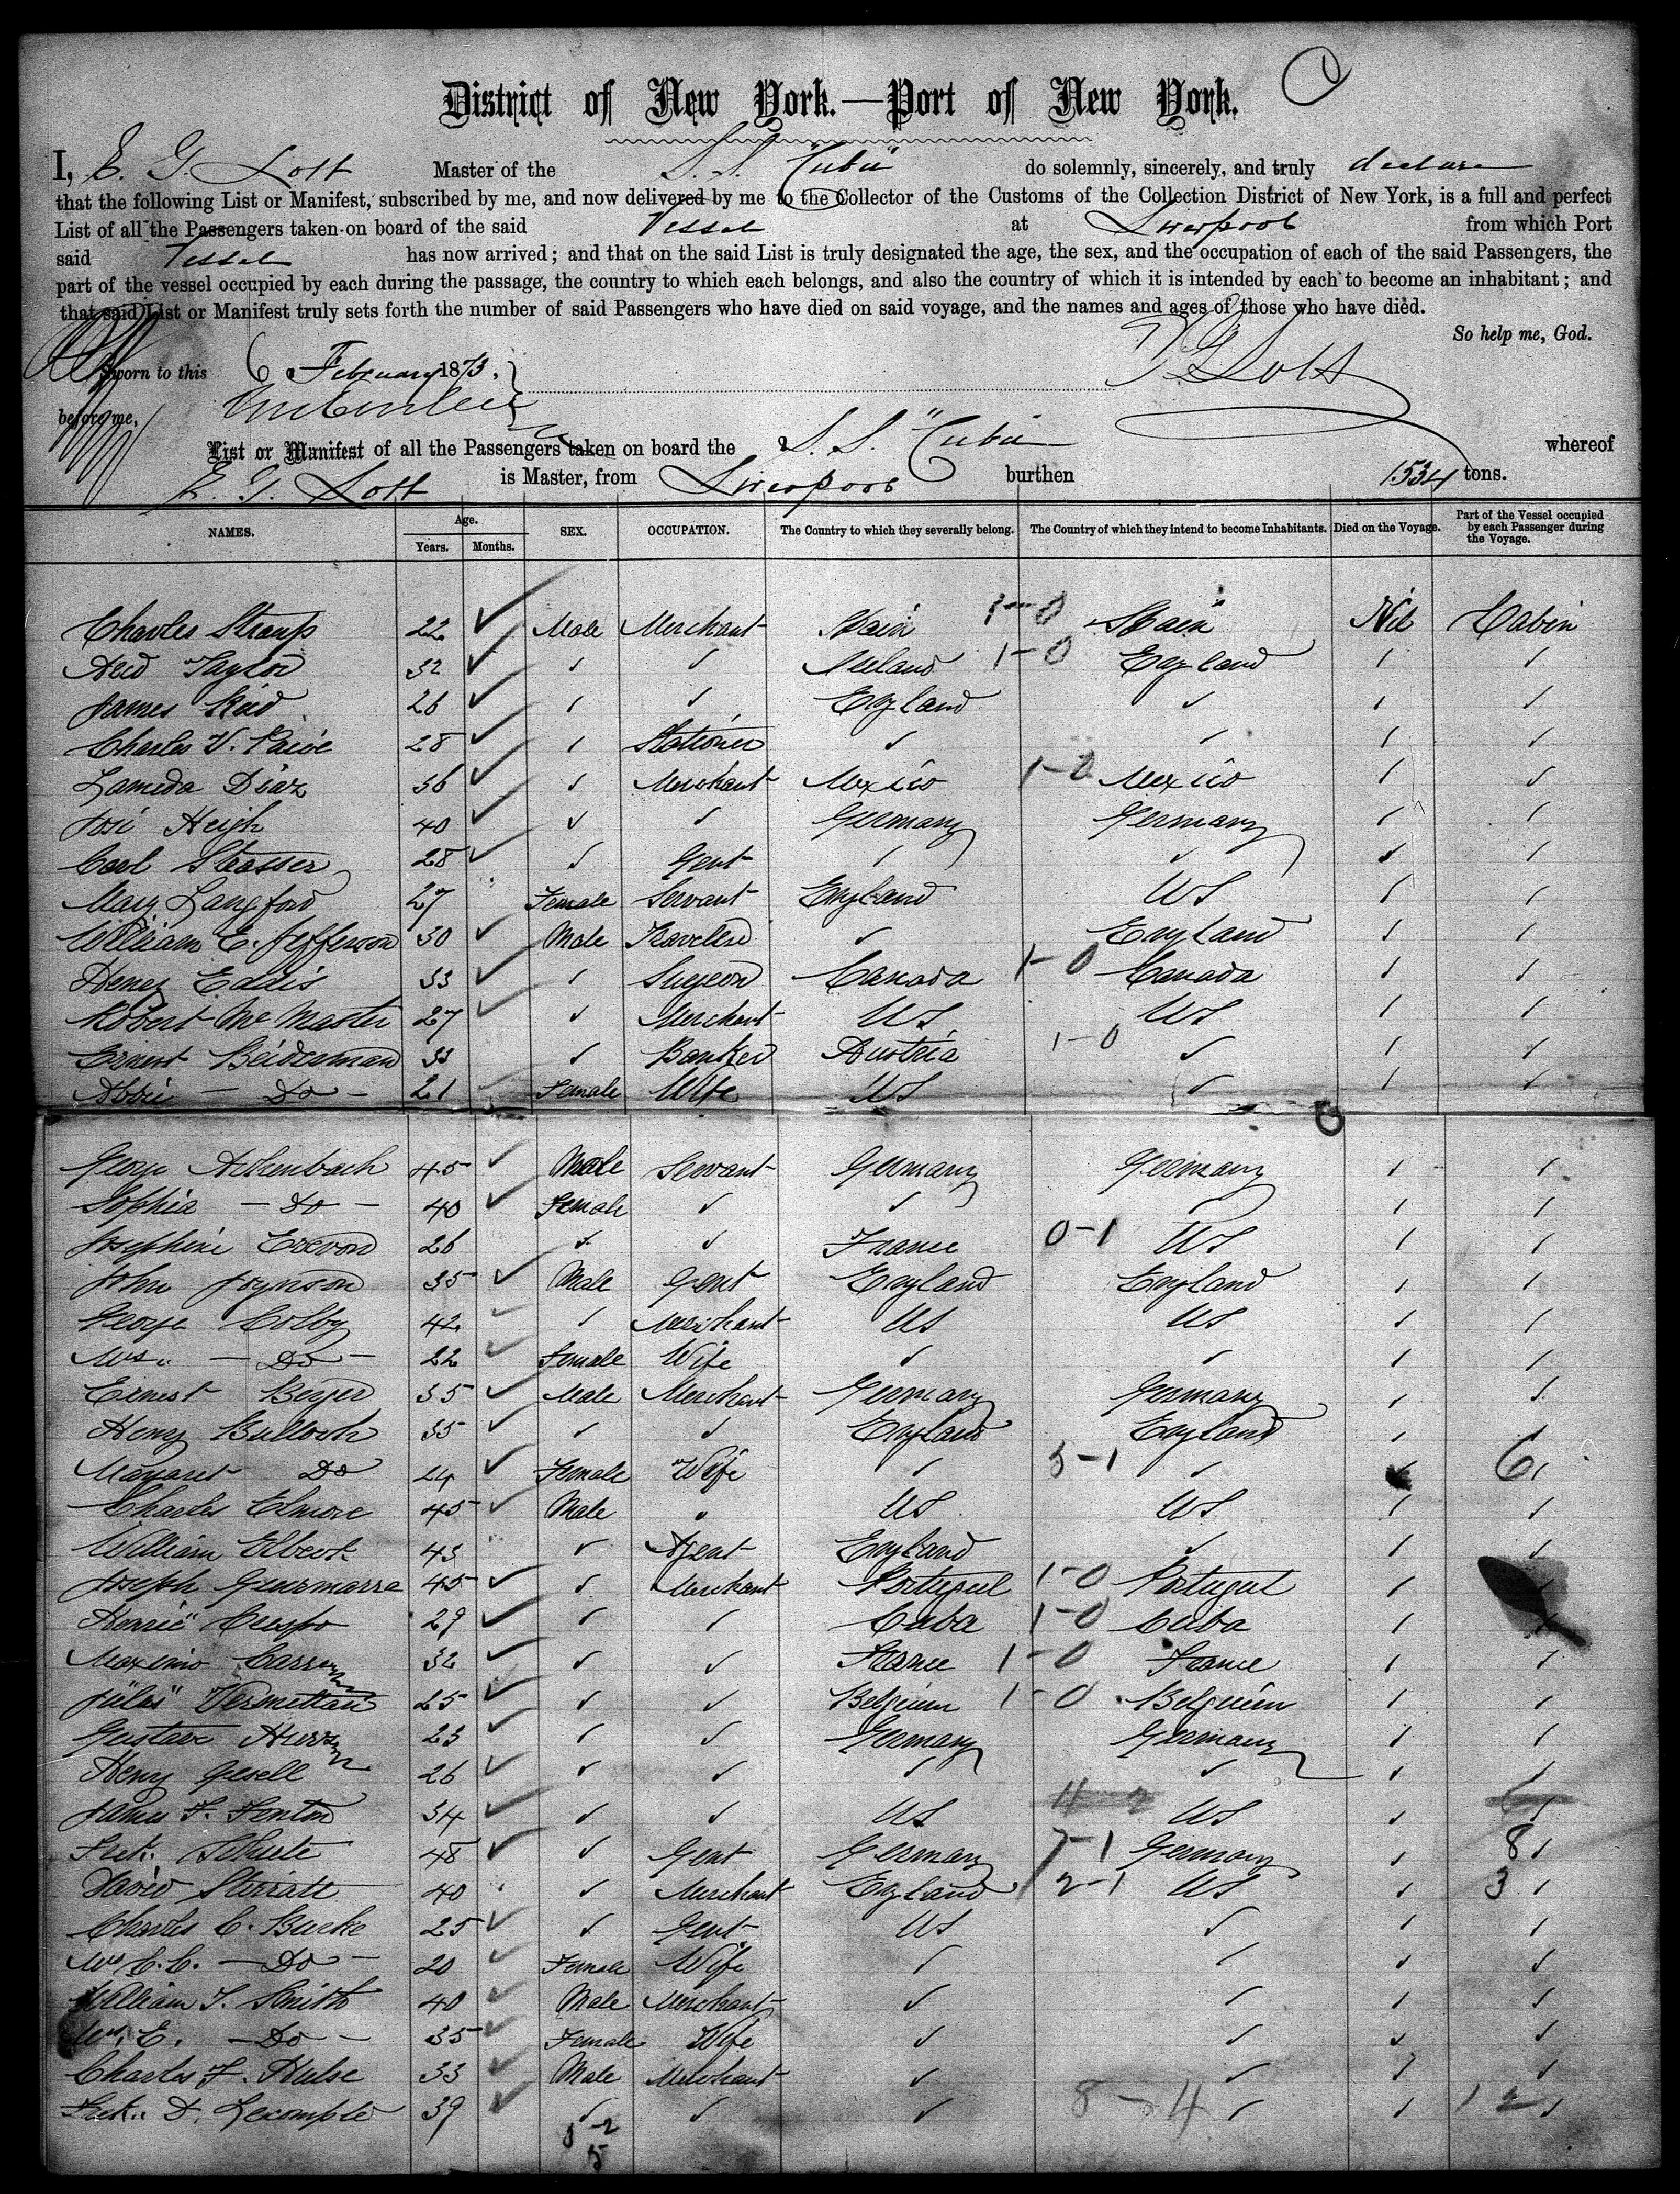 District of New York.—Port of New York.
I, E. G. Lott Master of the S. S. "Cuba" do solemnly, sincerely, and truly declare
that the following List or Manifest, subscribed by me, and now delivered by me to the Collector of the Customs of the Collection District of New York, is a full and perfect
List of all the Passengers taken on board of the said Vessel at Liverpool from which Port
said Vessel has now arrived; and that on the said List is truly designated the age, the sex, and the occupation of each of the said Passengers, the
part of the vessel occupied by each during the passage, the country to which each belongs, and also the country of which it is intended by each to become an inhabitant; and
that said List or Manifest truly sets forth the number of said Passengers who have died on said voyage, and the names and ages of those who have died.
So help me, God.
Sworn to this 6 February 1873.
before me,
List or Manifest of all the Passengers taken on board the S. S. "Cuba whereof
E. G. Lott is Master, from Liverpool burthen 1534 tons.
NAMES. Age. Years. Months. SEX. OCCUPATION. The Country to which they severally belong. The Country of which they intend to become Inhabitants. Died on the Voyage. Part of the Vessel occupied by each Passenger during the Voyage.
Charles 22 Male Merchant Spain 1-0 Spain Nil Cabin
Taylor 32 ✓ ✓ Ireland 1-0 England
James Reid 26 ✓ England ✓
Charles V. 28 Stationer ✓
Diaz 36 ✓ Merchant Mexico 1-0 Mexico
Heigh 40 ✓ ✓ Germany Germany
Carl Strasser 28 ✓ Gent ✓ ✓
Mary Langford 27 Female Servant England US
William E. Jefferson 30 Male ✓ England
Henry Eddis 33 Surgeon Canada 1-0 Canada
Robert McMaster 27 ✓ Merchant US US
Ernest Beiderman 33 ✓ Banker Austria 1-0 ✓
Do 21 Female Wife US ✓
George 45 Male Servant Germany Germany
Sophia — Do — 40 Female ✓ ✓ ✓
Josephine 26 ✓ ✓ France 0-1 US
John Joynson 35 Male Gent England England
George Colby 42 Merchant US US
Mrs. — Do — 22 Female Wife ✓ ✓
Ernest Beyer 35 Male Merchant Germany Germany
Henry Bulloch 35 ✓ ✓ England England
Margaret Do 24 Female Wife ✓ 5-1 ✓ 6
Charles Elmore 45 Male " US US
William 43 ✓ Agent England ✓
Joseph 45 ✓ Merchant Portugul 1-0 Portugul
Crespo 29 ✓ Cuba 1-0 Cuba
Maximo 32 ✓ ✓ France 1-0 France
Jules 25 ✓ ✓ Belgium 1-0 Belgium
Gustave 23 ✓ Germany Germany
Henry Gesell 26 ✓ ✓ ✓ ✓
James F. Fenton 34 ✓ ✓ US US
Fredk. Schulte 48 ✓ Gent Germany 7-1 Germany 8
David 40 ✓ Merchant England 2-1 US 3
Charles C. Burke 25 ✓ Gent US ✓
Mrs C. C. — Do — 20 Female Wife
William T. Smith 40 Male Merchant ✓
Mrs. E. — Do — 35 Female Wife ✓ ✓
Charles F. Hulse 33 Male Merchant ✓ ✓
Fredk. D. Lecompte 39 ✓ ✓ ✓ 8-4 12